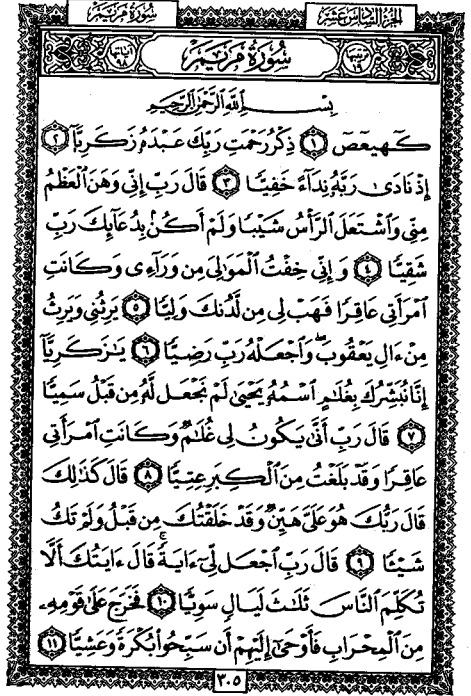 سورة مريم
الجزء السادس عشر
آياتها ٩٨
سُورَةُ مَرْيَمَ
ترتيبها ١٩
بِسْمِ اللَّهِ الرَّحْمَٰنِ الرَّحِيمِ
كٓهيعٓصٓ ١ ذِكْرُ رَحْمَتِ رَبِّكَ عَبْدَهُۥ زَكَرِيَّآ ٢
إِذْ نَادَىٰ رَبَّهُۥ نِدَآءً خَفِيًّا ٣ قَالَ رَبِّ إِنِّى وَهَنَ ٱلْعَظْمُ
مِنِّى وَٱشْتَعَلَ ٱلرَّأْسُ شَيْبًا وَلَمْ أَكُنۢ بِدُعَآئِكَ رَبِّ
شَقِيًّا ٤ وَإِنِّى خِفْتُ ٱلْمَوَٰلِىَ مِن وَرَآءِى وَكَانَتِ
ٱمْرَأَتِى عَاقِرًا فَهَبْ لِى مِن لَّدُنكَ وَلِيًّا ٥ يَرِثُنِى وَيَرِثُ
مِنْ ءَالِ يَعْقُوبَ ۖ وَٱجْعَلْهُ رَبِّ رَضِيًّا ٦ يَٰزَكَرِيَّآ
إِنَّا نُبَشِّرُكَ بِغُلَٰمٍ ٱسْمُهُۥ يَحْيَىٰ لَمْ نَجْعَل لَّهُۥ مِن قَبْلُ سَمِيًّا
٧ قَالَ رَبِّ أَنَّىٰ يَكُونُ لِى غُلَٰمٌ وَكَانَتِ ٱمْرَأَتِى
عَاقِرًا وَقَدْ بَلَغْتُ مِنَ ٱلْكِبَرِ عِتِيًّا ٨ قَالَ كَذَٰلِكَ
قَالَ رَبُّكَ هُوَ عَلَىَّ هَيِّنٌ وَقَدْ خَلَقْتُكَ مِن قَبْلُ وَلَمْ تَكُ
شَيْـًٔا ٩ قَالَ رَبِّ ٱجْعَل لِّىٓ ءَايَةً ۚ قَالَ ءَايَتُكَ أَلَّا
تُكَلِّمَ ٱلنَّاسَ ثَلَٰثَ لَيَالٍ سَوِيًّا ١٠ فَخَرَجَ عَلَىٰ قَوْمِهِۦ
مِنَ ٱلْمِحْرَابِ فَأَوْحَىٰٓ إِلَيْهِمْ أَن سَبِّحُوا۟ بُكْرَةً وَعَشِيًّا ١١
٣٠٥